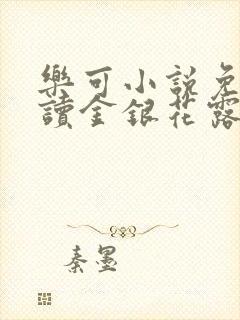 樂可小說免
讀金銀花露
秦墨